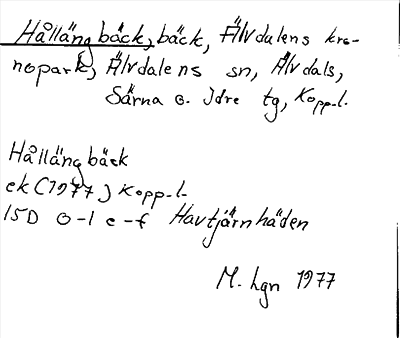 Hållängbäck, bäck, Älvdalens kro-
nopark, Älvdalens sn, Älvdals,
Särna o. Idre tg, Kopp.l.
Hållängbäck
ek (1977) Kopp.l.
15D 0-1 e-f Havtjärnhäden
M. hgn 1977